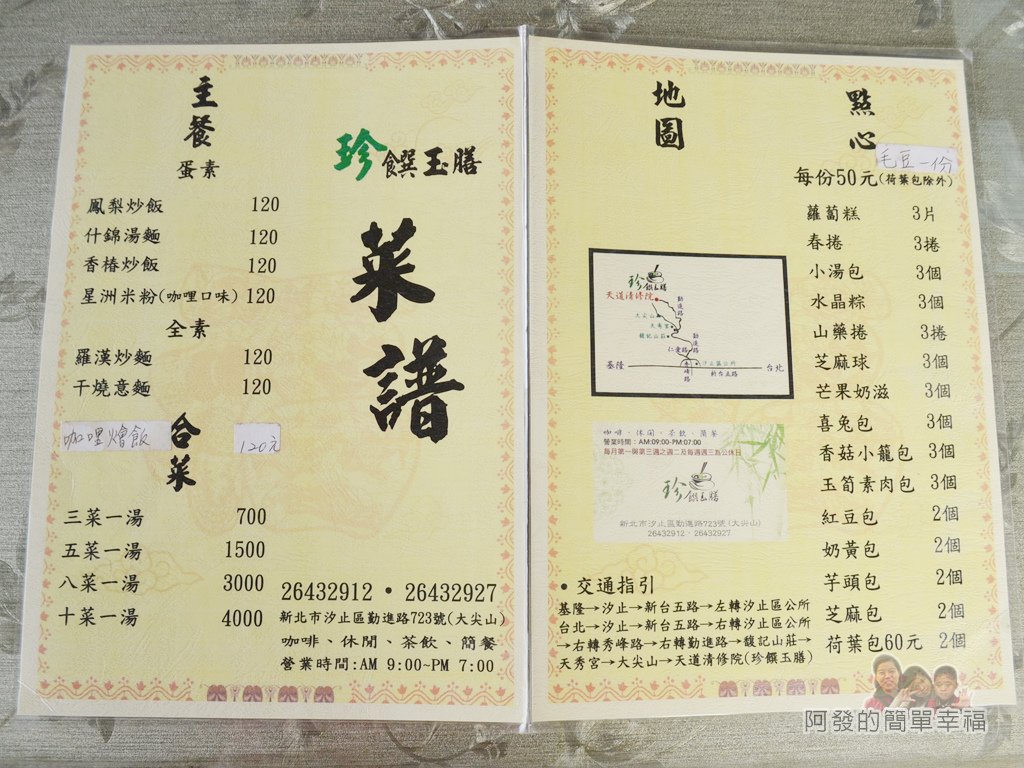 主餐
蛋素
鳳梨炒飯 120
什錦湯麵 120
香椿炒飯 120
星洲米粉(咖哩口味) 120
全素
羅漢炒麵 120
干燒意麵 120
咖哩燴飯 120元
合菜
三菜一湯 700
五菜一湯 1500
八菜一湯 3000
十菜一湯 4000
珍饌玉膳
菜譜
26432912・26432927
新北市汐止區勤進路723號(大尖山)
咖啡、休閒、茶飲、簡餐
營業時間:AM 9:00~PM 7:00
地圖
珍饌玉膳
天道清修院
勤進路
大尖山
天秀宮
馥記山莊
勤進路
仁愛路
秀峰路
汐止區公所
基隆
台北
新台五路
咖啡、休閒、茶飲、簡餐
營業時間:AM:09:00-PM:07:00
每月第一與第三週之週二及每週週三為公休日
珍饌玉膳
新北市汐止區勤進路723號(大尖山)
26432912、26432927
・交通指引
基隆→汐止→新台五路→左轉汐止區公所
台北→汐止→新台五路→右轉汐止區公所
→右轉秀峰路→右轉勤進路→馥記山莊→
天秀宮→大尖山→天道清修院(珍饌玉膳)
點心
毛豆一份
每份50元(荷葉包除外)
蘿蔔糕 3片
春捲 3捲
小湯包 3個
水晶粽 3個
山藥捲 3捲
芝麻球 3個
芒果奶滋 3個
喜兔包 3個
香菇小籠包 3個
玉筍素肉包 3個
紅豆包 2個
奶黃包 2個
芋頭包 2個
芝麻包 2個
荷葉包60元 2個
阿發的簡單幸福